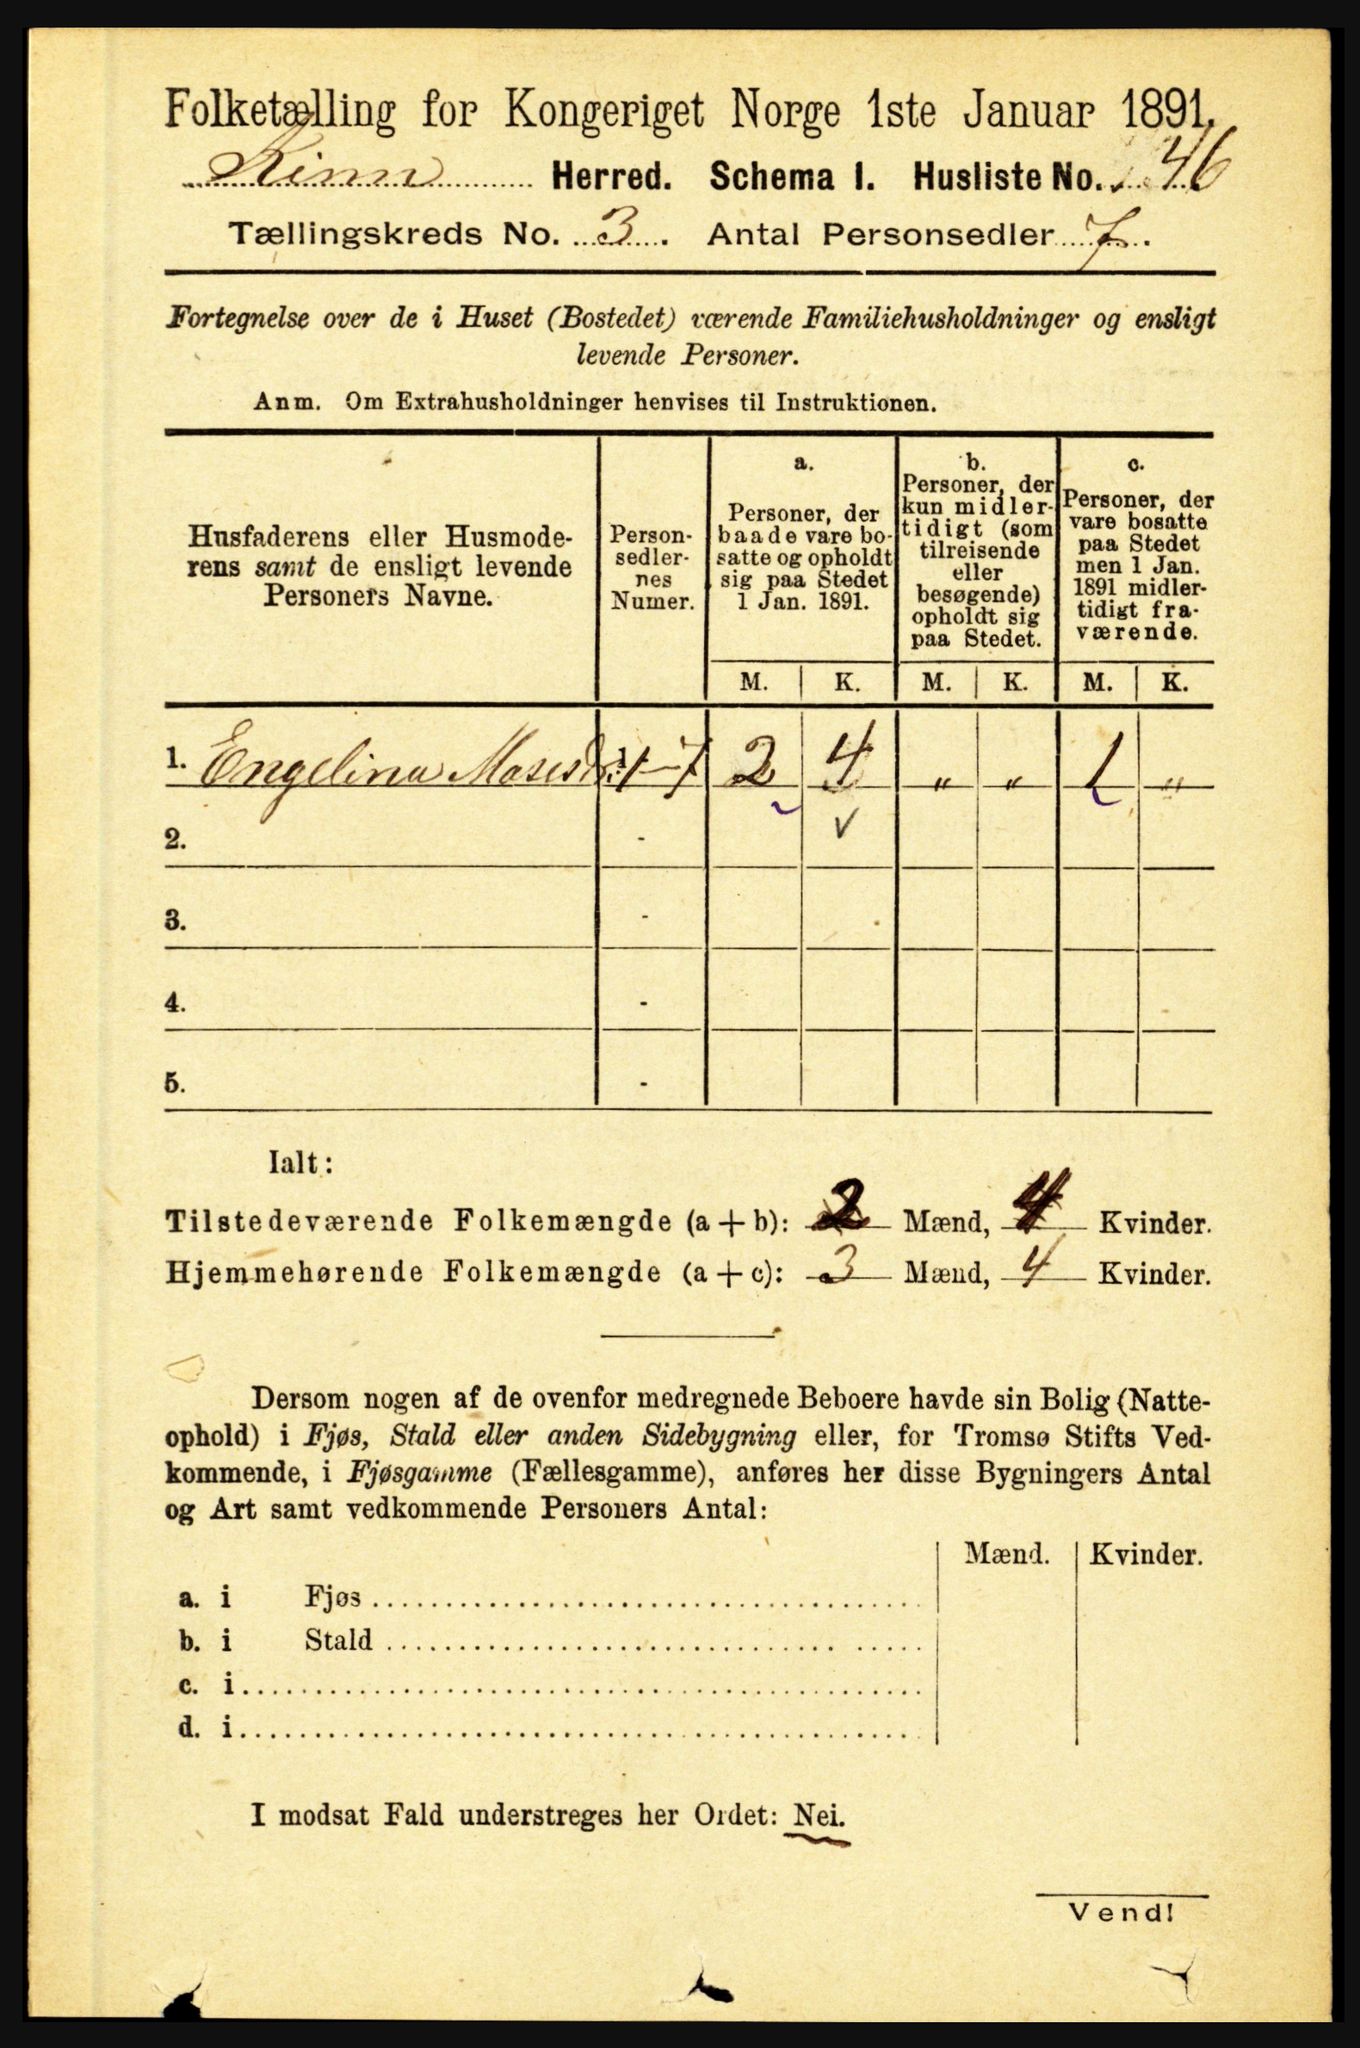 Folketælling for Kongeriget Norge 1ste Januar 1891.
Kinn Herred. Schema I. Husliste No. 46
Tællingskreds No. 3. Antal Personsedler 7.
Fortegnelse over de i Huset (Bostedet) værende Familiehusholdninger og ensligt
levende Personer.
Anm. Om Extrahusholdninger henvises til Instruktionen.
Husfaderens eller Husmode-
rens samt de ensligt levende
Personers Navne.
Person-
sedler-
nes
Numer.
a.
Personer, der
baade vare bo-
satte og opholdt
sig paa Stedet
1 Jan. 1891.
b.
Personer, der
kun midler-
tidigt (som
tilreisende
eller
besøgende)
opholdt sig
paa Stedet.
c.
Personer, der
vare bosatte
paa Stedet
men 1 Jan.
1891 midler-
tidigt fra-
værende.
M. K. M. K. M. K.
1. Engelina 1-7 2 4 „ „ 1 „
2. - v
3. -
4. -
5. -
Ialt:
Tilstedeværende Folkemængde (a+b): 2 Mænd, 4 Kvinder.
Hjemmehørende Folkemængde (a+c): 3 Mænd, 4 Kvinder.
Dersom nogen af de ovenfor medregnede Beboere havde sin Bolig (Natte-
ophold) i Fjøs, Stald eller anden Sidebygning eller, for Tromsø Stifts Ved-
kommende, i Fjøsgamme (Fællesgamme), anføres her disse Bygningers Antal
og Art samt vedkommende Personers Antal:
Mænd. Kvinder.
a. i Fjøs
b. i Stald
c. i
d. i
I modsat Fald understreges her Ordet: Nei.
Vend!